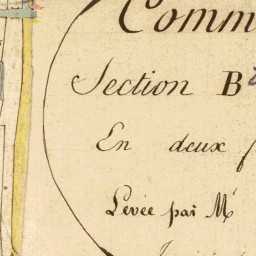 Comm
Section B
En deux f
Levée par Mr